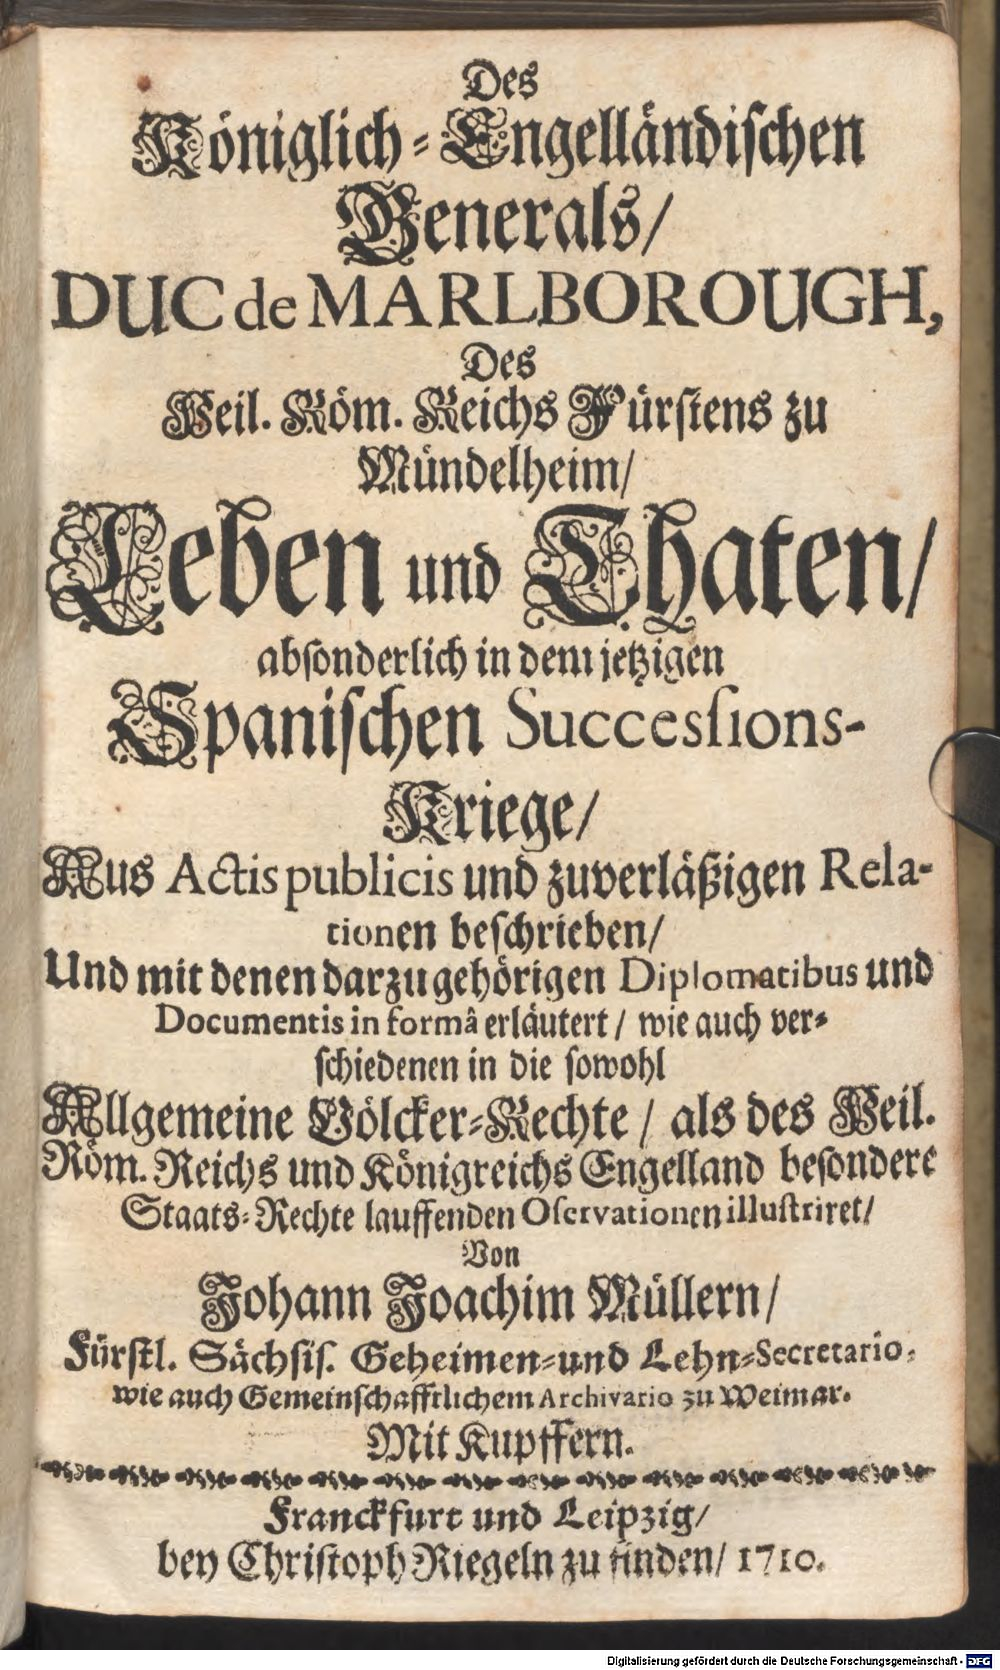 Des
Königlich-Engelländischen
Generals/
DUC de MARLBOROUGH,
Des
Heil. Röm. Reichs Fürstens zu
Mündelheim/
Leben und Thaten/
absonderlich in dem jetzigen
Spanischen Successions-
Kriege/
Aus Actis publicis und zuverläßigen Rela-
tionen beschrieben/
Und mit denen darzu gehörigen Diplomatibus und
Documentis in formâ erläutert/ wie auch ver-
schiedenen in die sowohl
Allgemeine Völcker-Rechte/ als des Heil.
Röm. Reichs und Königreichs Engelland besondere
Staats-Rechte lauffenden Oservationen illustriret/
Von
Johann Joachim Müllern/
Fürstl. Sächsis. Geheimen-und Lehn-Secretario,
wie auch Gemeinschafftlichem Archivario zu Weimar.
Mit Kupffern.
Franckfurt und Leipzig/
bey Christoph Riegeln zu finden/ 1710.
Digitalisierung gefördert durch die Deutsche Forschungsgemeinschaft - DFG